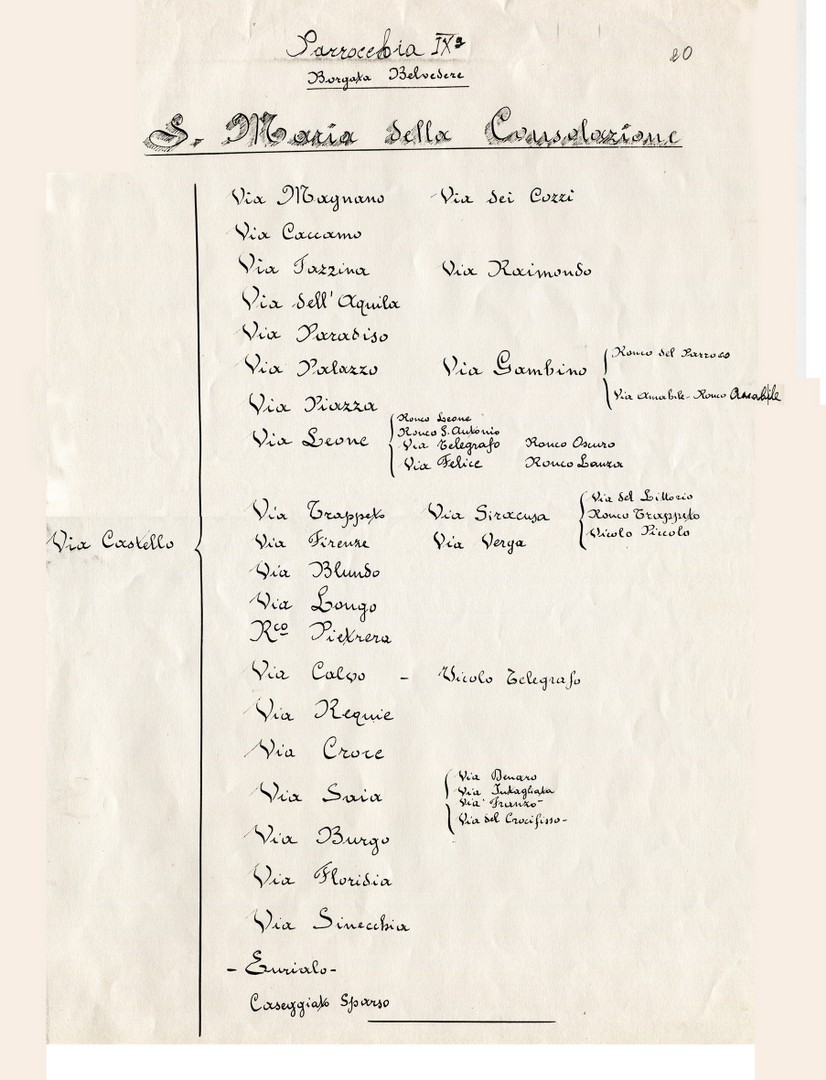 Parrocchia IXª
20
Borgata Belvedere
S. Maria della Consolazione
Via Magnano Via dei Cozzi
Via Caccamo
Via Tazzina Via Raimondo
Via dell'Aquila
Via Paradiso
Ronco del Parroco
Via Palazzo Via Gambino
Via Amabile - Ronco Amabile
Via Piazza
Ronco Leone
Ronco S. Antonio
Via Leone Via Telegrafo Ronco Oscuro
Via Felice Ronco Lanza
Via del Littorio
Via Trappeto Via Siracusa Ronco Trappeto
Vicolo Piccolo
Via Castello Via Firenze Via Verga
Via Blundo
Via Longo
Rco Pietrera
Via Calvo - Vicolo Telegrafo
Via Requie
Via Croce
Via Benaro
Via Saia Via Intagliata
Via Franzo -
Via del Crocifisso -
Via Burgo
Via Floridia
Via Sinecchia
- Eurialo -
Caseggiato Sparso